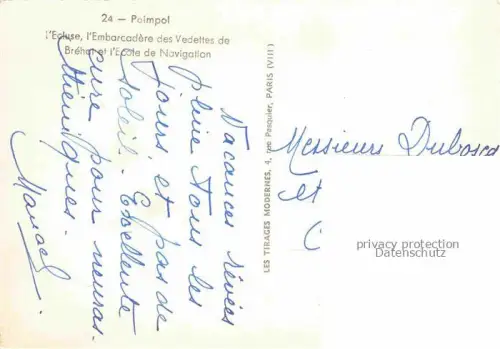 24 — Paimpol
L'Ecluse, l'Embarcadère des Vedettes de
Bréhat et l'Ecole de Navigation
Vacances rêvées
pluie tous les
jours et pas de
soleil. Excellente
cure pour neuras-
théniques.
Marcel
LES TIRAGES MODERNES, 4, rue Pasquier, PARIS (VIIIe)
Messieurs Dubosca
et
privacy protection
Datenschutz